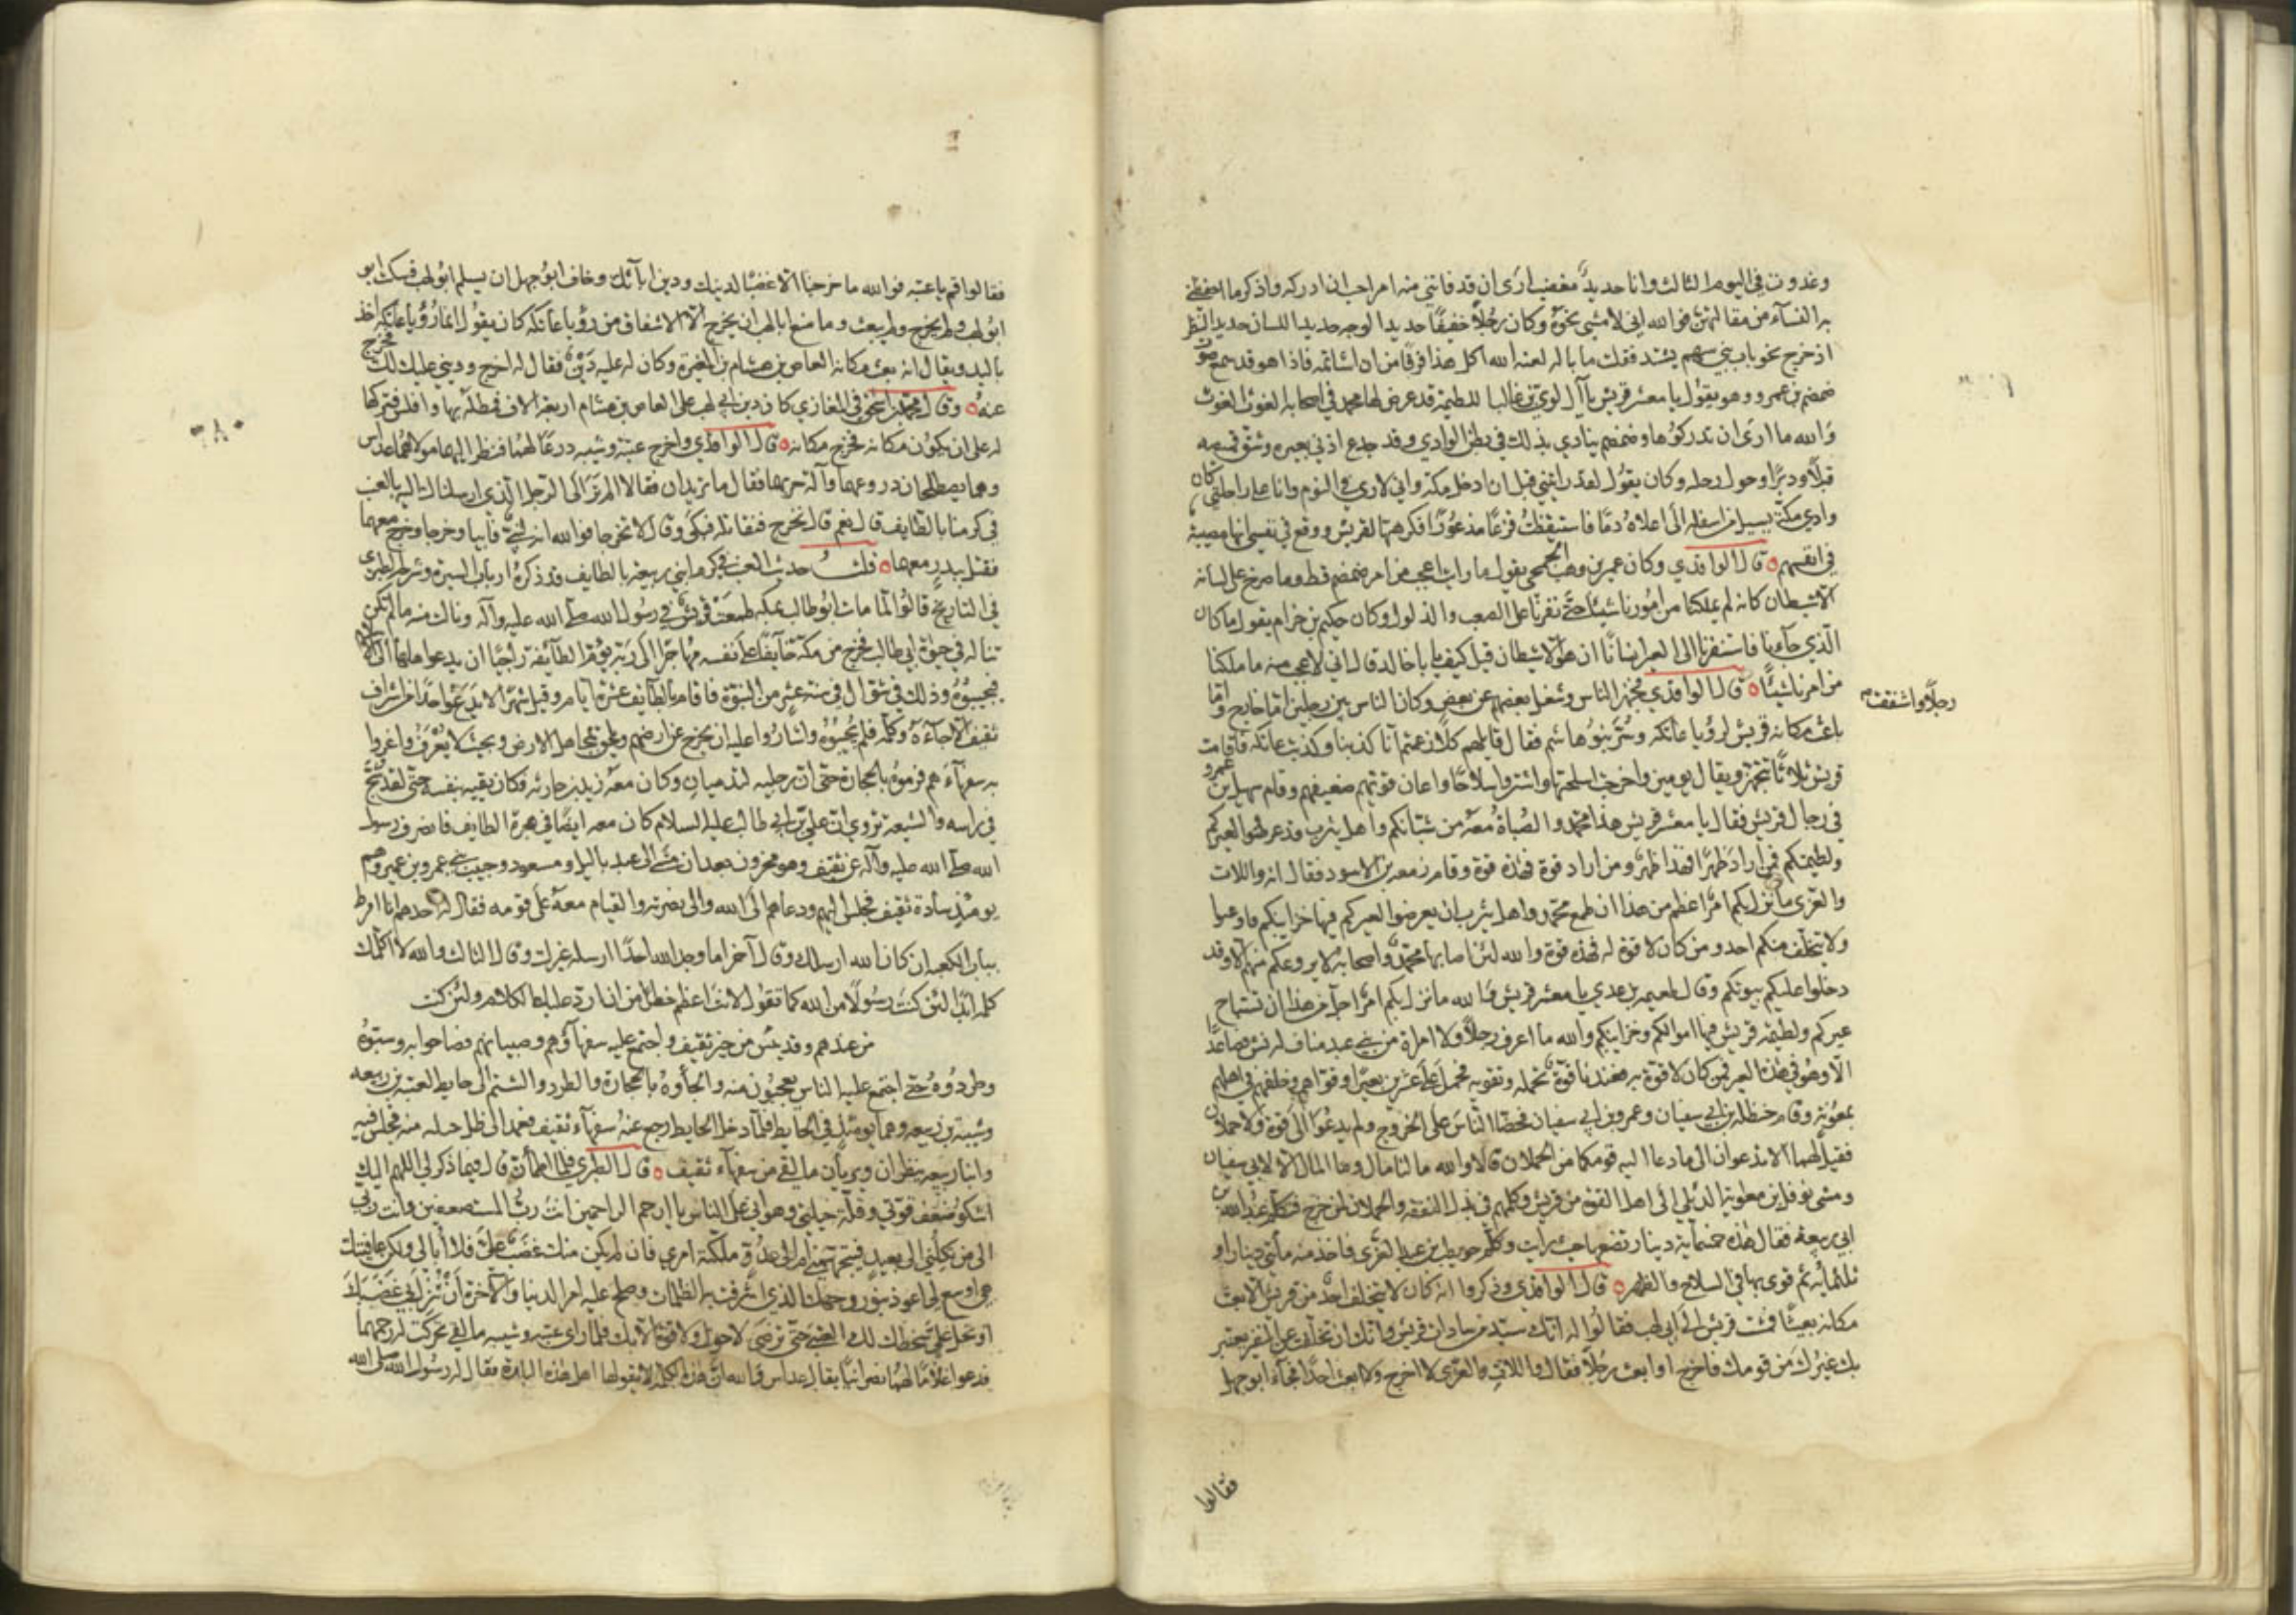 وغدوت في اليوم الثالث وانا حديد مغضب ارى ان قد فاتني منه امر احب ان ادركه واذكر ما احفظني
به النساء من مقالتهن فوالله اني لامشي نحوه وكان رجلا خفيفا حديد الوجه حديد اللسان حديد النظر
اذ خرج نحو باب بني سهم يشتد فقلت ما باله لعنه الله اكل هذا فرقا من ان اشاتمه فاذا هو قد سمع صوت
ضمضم بن عمرو وهو يقول يا معشر قريش يا آل لوي بن غالب اللطيمة قد عرض لها محمد في اصحابه الغوث الغوث
والله ما ارى ان تدركوها وضمضم ينادي بذلك في بطن الوادي وقد جدع اذني بعيره وشق قميصه
قبلا ودبرا وحول رحله وكان يقول لقد رايتني قبل ان ادخل مكة واني لارى في النوم وانا على راحلتي كان
وادي مكة يسيل من اسفله الى اعلاه دما فاستيقظت فزعا مذعورا فكرهتها لقريش ووقع في نفسي انها مصيبة
في انفسهم قال الواقدي وكان عمير بن وهب الجمحي يقول ما رايت اعجب من امر ضمضم قط وما صرخ على لسانه
الا شيطان كانه لم يملكنا من امورنا شيئا حتى نفرنا على الصعب والذلول وكان حكيم بن حزام يقول ما كان
الذي جاءنا فاستنفرنا الى العير انسانا ان هو الا شيطان قيل كيف يا باخالد قال اني لاعجب منه ما ملكنا
من امرنا شيئا قال الواقدي فجهز الناس وشغل بعضهم عن بعض وكان الناس بين رجلين اما خارج واما
باعث مكانه رجلا واشفقت
قريش لرؤيا عاتكة وسر بنو هاشم فقال قائلهم كلا زعمتم انا كذبنا وكذبت عاتكة فاقامت
قريش ثلاثا تتجهز ويقال يومين واخرجت اسلحتها واشتروا سلاحا واعان قويهم ضعيفهم وقام سهيل بن عمرو
في رجال قريش فقال يا معشر قريش هذا محمد والصباة معه من شبانكم واهل يثرب قد عرضوا لعيركم
ولطيمتكم فمن اراد ظهرا فهذا ظهر ومن اراد قوة فهذه قوة وقام زمعة بن الاسود فقال انه واللات
والعزى ما نزل بكم امر اعظم من هذا ان طمع محمد واهل يثرب ان يعرضوا لعيركم فيها خزاينكم فاوعبوا
ولا يتخلف منكم احد ومن كان لا قوة له فهذه قوة والله لئن اصابها محمد واصحابه لا يروعكم منهم الا وقد
دخلوا عليكم بيوتكم وقال طعيمة بن عدي يا معشر قريش والله ما نزل بكم امر اجل من هذا ان تستباح
عيركم ولطيمة قريش فيها اموالكم وخزاينكم والله ما اعرف رجلا ولا امراة من بني عبد مناف له نش فصاعدا
الا وهو في هذه العير فمن كان لا قوة به فعندنا قوة نحمله ونقويه فحمل على عشرين بعيرا وقواهم وخلفهم في اهلهم
بمعونة وقام حنظلة بن ابي سفيان وعمرو بن ابي سفيان فحضا الناس على الخروج ولم يدعوا الى قوة ولا حملان
فقيل لهما الا تدعوان الى ما دعا اليه قومكما من الحملان قالا والله ما لنا مال وما المال الا لابي سفيان
ومشى نوفل بن معوية الديلي الى اهل القوة من قريش وكلمهم في بذل النفقة والحملان لمن خرج فكلم عبد الله بن
ابي ربيعة فقال هذه خمسمائة دينار تضعها حيث رايت وكلم حويطب بن عبد العزى فاخذ منه مائتي دينار او
ثلثمائة ثم قوى بها في السلاح والظهر قال الواقدي وذكروا انه كان لا يتخلف احد من قريش الا بعث
مكانه بعيثا فمشت قريش الى ابي لهب فقالوا له انك سيد من سادات قريش وانك ان تخلفت عن النفير يعتبر
بك غيرك من قومك فاخرج او ابعث رجلا فقال واللات والعزى لا اخرج ولا ابعث احدا فجاءه ابو جهل
فقالوا
فقالوا قم يا عتبه فوالله ما خرجنا الا غضبا لدينك ودين ابآئك وخاف ابو جهل ان يسلم ابو لهب فسكت ابو
ابو لهب ولم يخرج ولم يبعث وما منع ابا لهب ان يخرج الا الاشفاق من رؤيا عاتكة كان يقول انما رؤيا عاتكة اخذ
باليد ويقال انه بعث مكانه العاص بن هشام بن المغيرة وكان له عليه دين فقال له اخرج وديني عليك لك فخرج
عنه وقال محمد بن اسحق في المغازي كان دين ابي لهب على العاص بن هشام اربعة الاف فمطله بها وافلس فتركها
له على ان يكون مكانه فخرج مكانه قال الواقدي واخرج عتبة وشيبة دروعا لهما فنظر اليهما مولاهما عداس
وهما يصلحان دروعهما وآلة حربهما فقال ما تريدان فقالا الم تر الى الرجل الذي ارسلناك اليه بالعنب
في كرمنا بالطايف قال نعم قالا نخرج فنقاتله فبكى وقال لا تخرجا فوالله انه لنبي فابيا وخرجا وخرج معهما
فقتل ببدر معهما قلت حديث العنب في كرم ابني ربيعة بالطايف قد ذكره ارباب السيرة وشرحه الطبري
في التاريخ قالوا لما مات ابو طالب بمكة طمعت قريش في رسول الله صلى الله عليه وآله ونالت منه ما لم تكن
تناله في حيوة ابي طالب فخرج من مكة خايفا على نفسه مهاجرا الى ربه يؤم الطائف راجيا ان يدعو اهلها الى الاسلام
فيجيبوه وذلك في شوال في سنة عشر من النبوة فاقام بالطائف عشرة ايام وقيل شهرا لا يدع احدا من اشراف
ثقيف الا جاءه وكلمه فلم يجيبوه واشاروا عليه ان يخرج عن ارضهم ويلحق بمجاهل الارض وبحيث لا يعرف واغروا
به سفهآءهم فرموه بالحجارة حتى ان رجليه لتدميان وكان معه زيد بن حارثه فكان يقيه بنفسه حتى لقد شج
في راسه والشيعة تروي ان علي بن ابي طالب عليه السلام كان معه ايضا في هجرة الطايف فانصرف رسول
الله صلى الله عليه وآله عن ثقيف وهو محزون بعد ان مشى الى عبد ياليل ومسعود وحبيب بني عمرو بن عمير وهم
يومئذ سادة ثقيف فجلس اليهم ودعاهم الى الله والى نصرته والقيام معه على قومه فقال له احدهم انا امرط
بباب الكعبه ان كان الله ارسلك وقال آخر اما وجد الله احدا ارسله غيرك وقال الثالث والله لا اكلمك
كلمة ابدا لئن كنت رسولا من الله كما تقول لانت اعظم خطرا من ان ارد عليك الكلام ولئن كنت
من عندهم وقد يئس من خير ثقيف واجتمع عليه سفهاؤهم وصبيانهم فصاحوا به وسبوه
وطردوه حتى اجتمع عليه الناس يعجبون منه والجأوه بالحجارة والطرد والشتم الى حايط لعتبة بن ربيعه
وشيبة بن ربيعه وهما يومئذ في الحايط فلما دخل الحايط رجع عنه سفهآء ثقيف فعمد الى ظل حبله منه فجلس فيه
وابنا ربيعه ينظران ويريان ما لقي من سفهآء ثقيف قال الطبري فلما اطمأن قال فيما ذكر لي اللهم اليك
اشكو ضعف قوتي وقلة حيلتي وهواني على الناس يا ارحم الراحمين انت رب المستضعفين وانت ربي
الى من تكلني الى بعيد فيتجهمني ام الى عدو ملكته امري فان لم يكن منك غضب علي فلا ابالي ولكن عافيتك
هي اوسع لي اعوذ بنور وجهك الذي اشرقت به الظلمات وصلح عليه امر الدنيا والآخرة ان تنزل بي غضبك
او تحل علي سخطك لك العتبى حتى ترضى لا حول ولا قوة الا بك فلما راى عتبه وشيبه ما لقي تحركت له رحمهما
فدعوا غلاما لهما نصرانيا يقال له عداس والله ان هذه الكلمة لا يقولها اهل هذه البلدة فقال له رسول الله صلى الله